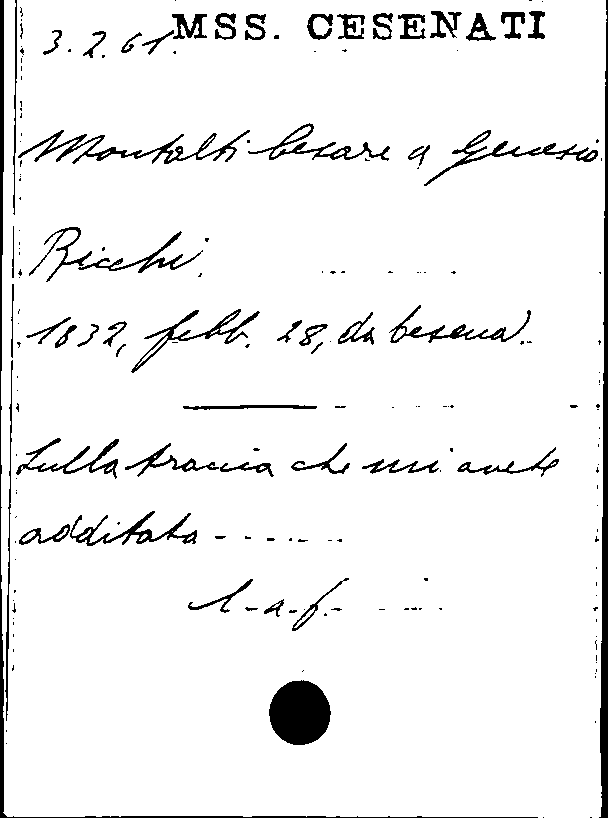 3.2.61. MSS. CESENATI
Montalti Cesare a Genesio
Ricchi.
1832, febb. 28, da Cesena.
Sulla traccia che mi avete
additata - - - - - -
l-a.f.